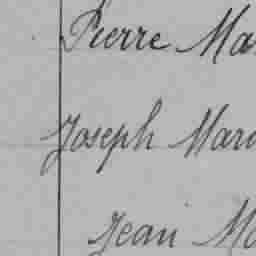 Pierre Ma
Joseph Mari
Jean Ma